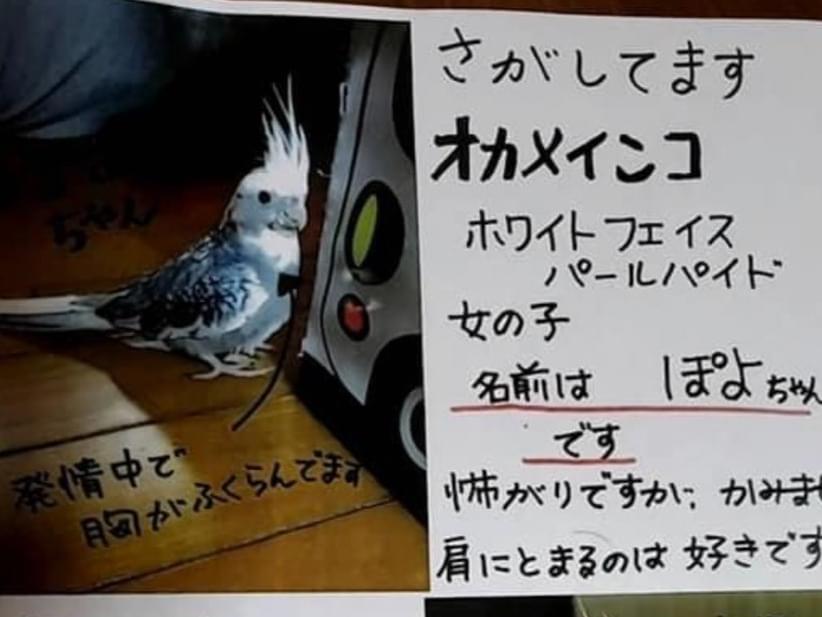 さがしてます
オカメインコ
ホワイトフェイス
パールパイド
女の子
名前は ぽよちゃん
です
怖がりですが、かみませ
肩にとまるのは 好きです
ちゃん
発情中で
胸がふくらんでます